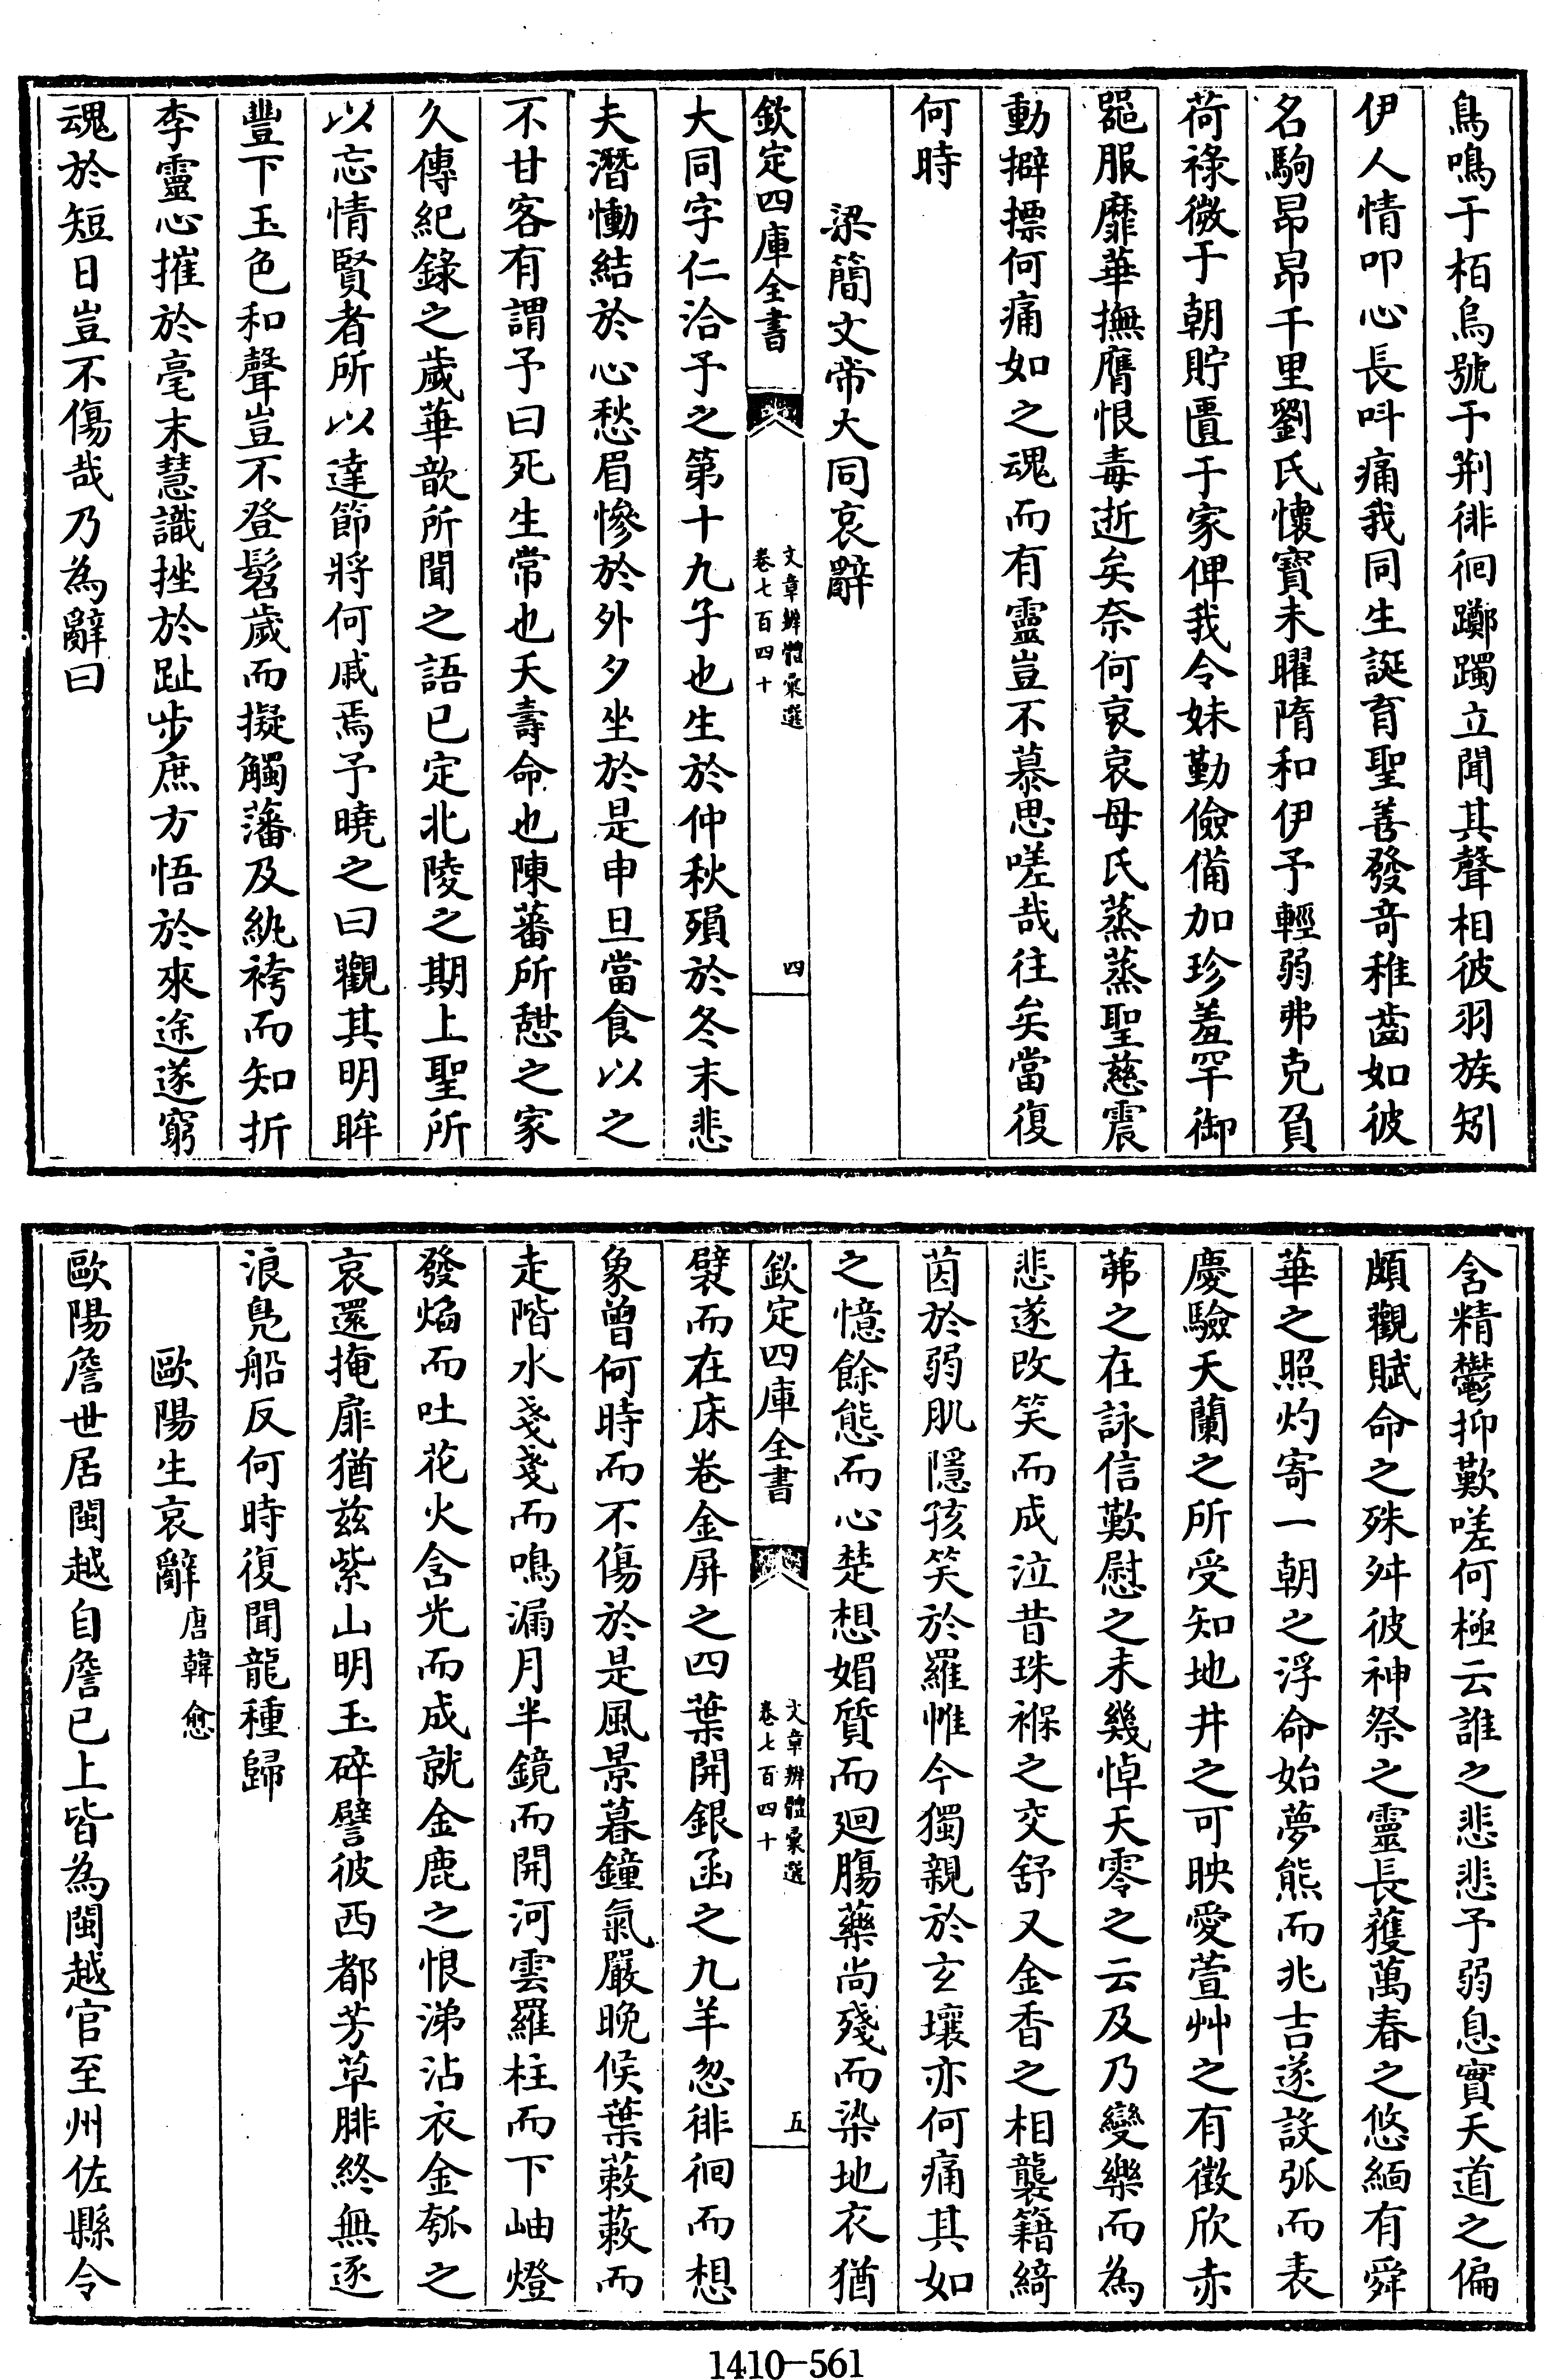 鳥鳴于栢烏號于荆徘徊躑躅立聞其聲相彼羽族矧
伊人情叩心長呌痛我同生誕育聖善發竒稚齒如彼
名駒昂昂千里劉氏懷寶未曜隋和伊予輕弱弗克負
荷祿微于朝貯匱于家俾我令妹勤儉備加珍羞罕御
噐服靡華撫膺恨毒逝矣奈何哀哀母氏蒸蒸聖慈震
動擗摽何痛如之魂而有靈豈不慕思嗟哉往矣當復
何時
梁簡文帝大同哀辭
欽定四庫全書
文章辨體彙選
卷七百四十
四
大同字仁洽予之第十九子也生於仲秋殞於冬末悲
夫潛慟結於心愁眉慘於外夕坐於是申旦當食以之
不甘客有謂予曰死生常也夭壽命也陳蕃所憇之家
久傳紀錄之歲華歆所聞之語已定北陵之期上聖所
以忘情賢者所以達節將何戚焉予曉之曰觀其明眸
豐下玉色和聲豈不登髫歲而擬觸藩及紈袴而知折
李靈心摧於毫末慧識挫於趾步庶方悟於來途遂窮
魂於短日豈不傷哉乃為辭曰
含精鬱抑歎嗟何極云誰之悲悲予弱息實天道之偏
頗觀賦命之殊舛彼神祭之靈長獲萬春之悠緬有舜
華之照灼寄一朝之浮命始夢熊而兆吉遂設弧而表
慶驗天蘭之所受知地井之可映愛萱艸之有徵欣赤
茀之在詠信歎慰之未幾悼夭零之云及乃變樂而為
悲遂改笑而成泣昔珠褓之交舒又金香之相襲籍綺
茵於弱肌隱孩笑於羅惟今獨親於玄壤亦何痛其如
之憶餘態而心楚想媚質而廻膓藥尚殘而染地衣猶
欽定四庫全書
文章辨體彙選
卷七百四十
五
襞而在床卷金屏之四葉開銀函之九羊忽徘徊而想
象曾何時而不傷於是風景暮鐘氣嚴晚候葉蔌蔌而
走階水戔戔而鳴漏月半鏡而開河雲羅柱而下岫燈
發焰而吐花火含光而成就金鹿之恨涕沾衣金瓠之
哀還掩扉猶兹紫山明玉碎譬彼西都芳草腓終無逐
浪鳧船反何時復聞龍種歸
歐陽生哀辭唐韓愈
歐陽詹世居閩越自詹已上皆為閩越官至州佐縣令
1410-561